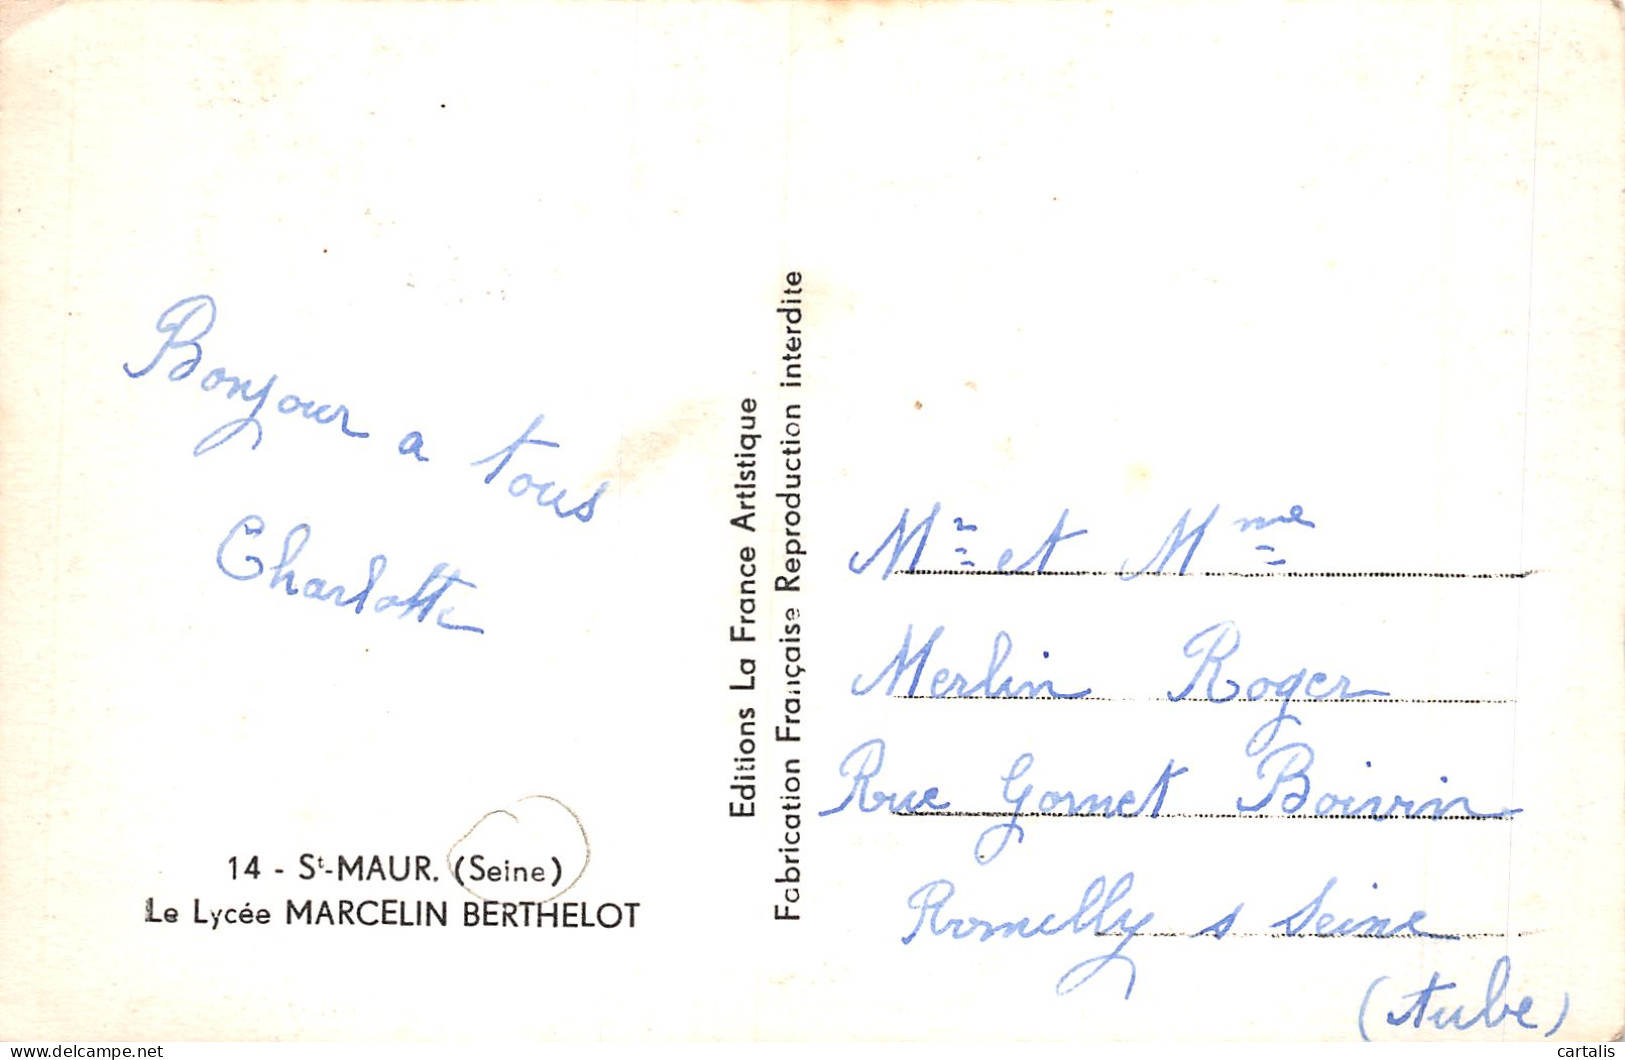 Bonjour a tous
Charlotte
14 - St-MAUR. (Seine)
Le Lycée MARCELIN BERTHELOT
Editions La France Artistique
Fabrication Française Reproduction interdite
Mr et Mme
Merlin Roger
Rue Gornet Boivin
Romilly s Seine
(Aube)
cartalis